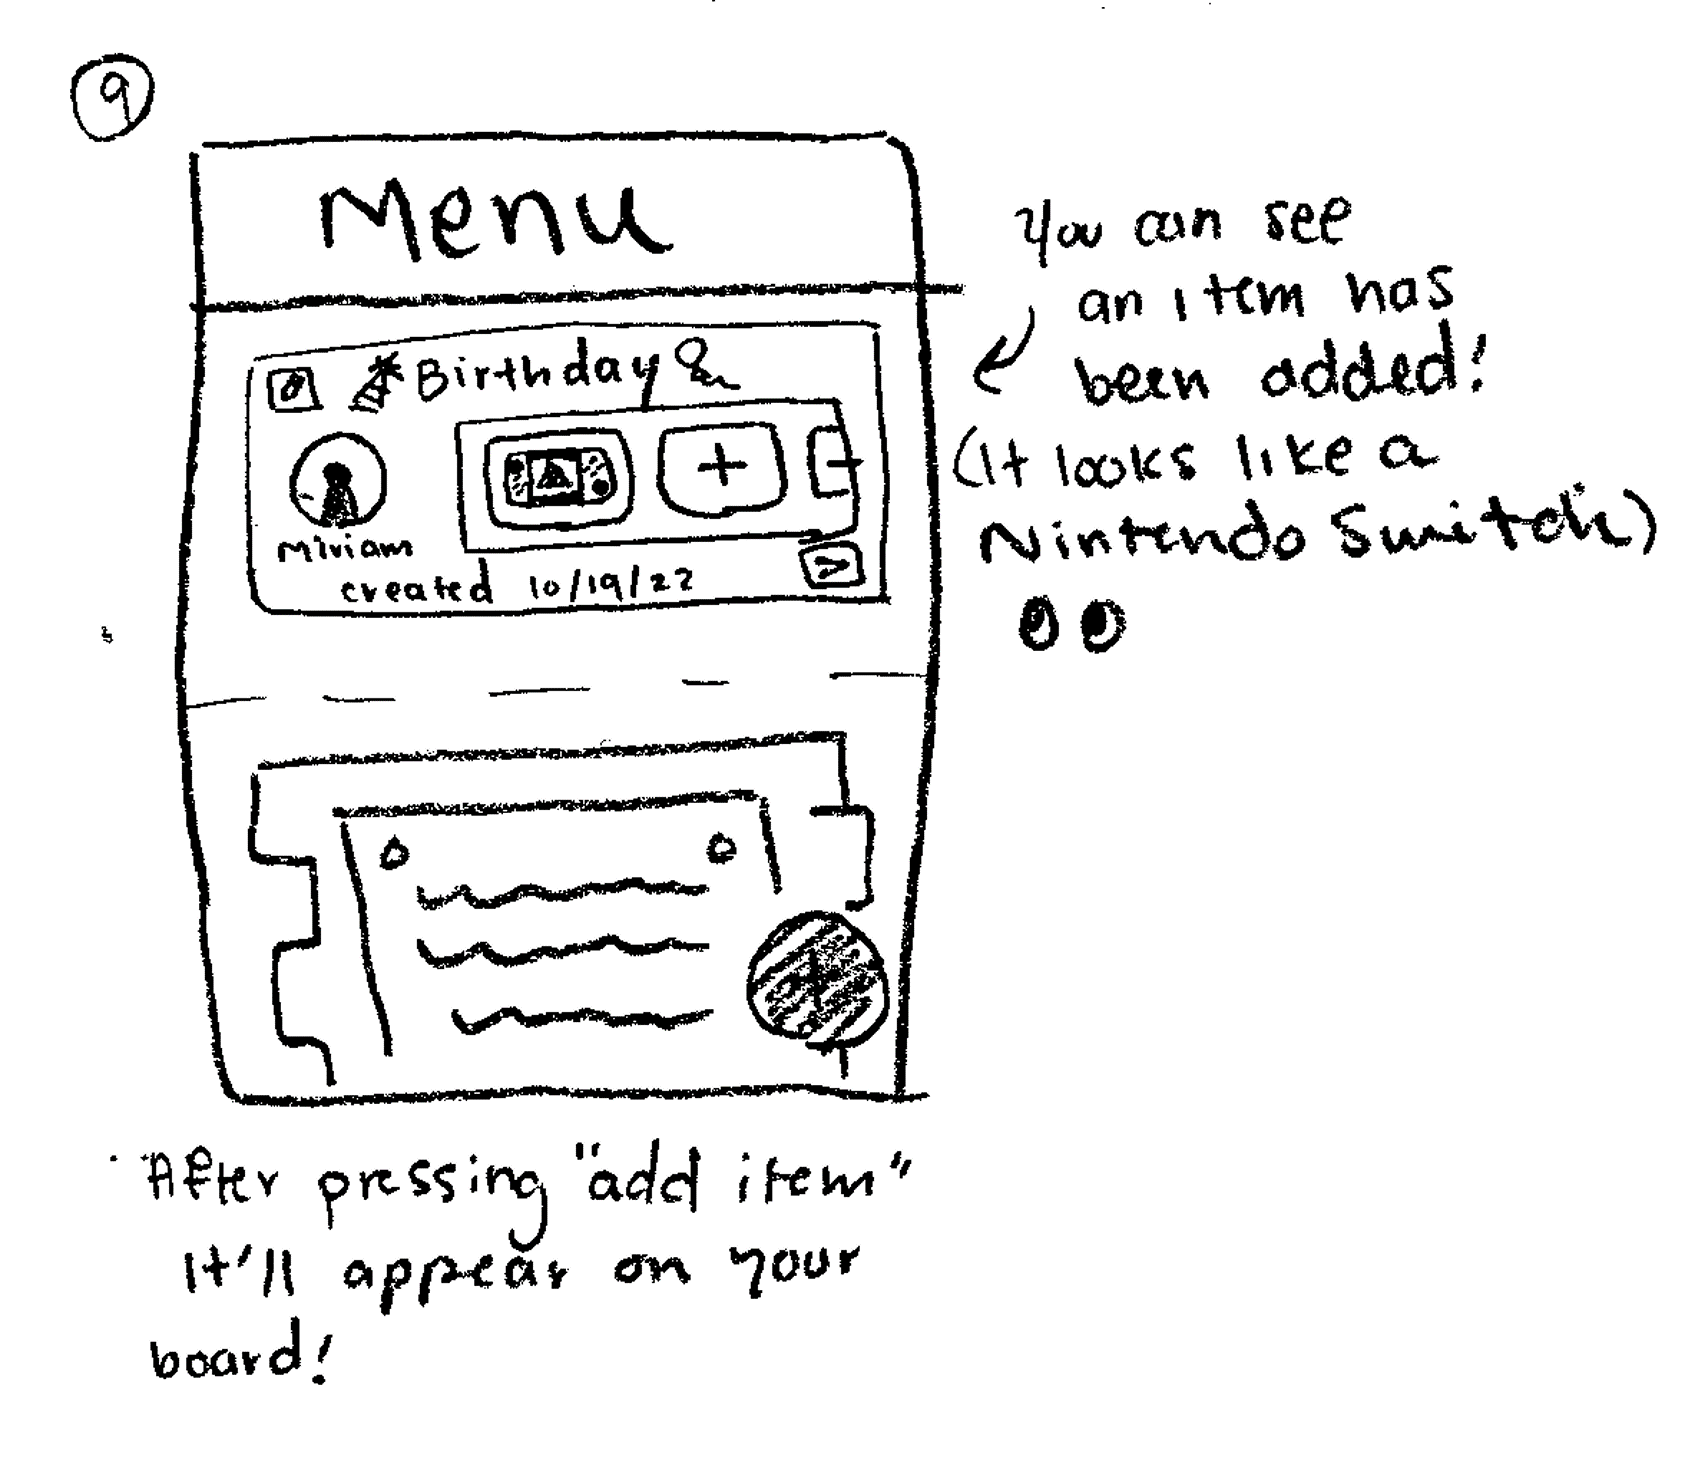 9
Menu
Birthday
+
Miriam
created 10/19/22
>
+
You can see
an item has
been added!
(It looks like a
Nintendo Switch)
After pressing "add item"
It'll appear on your
board!